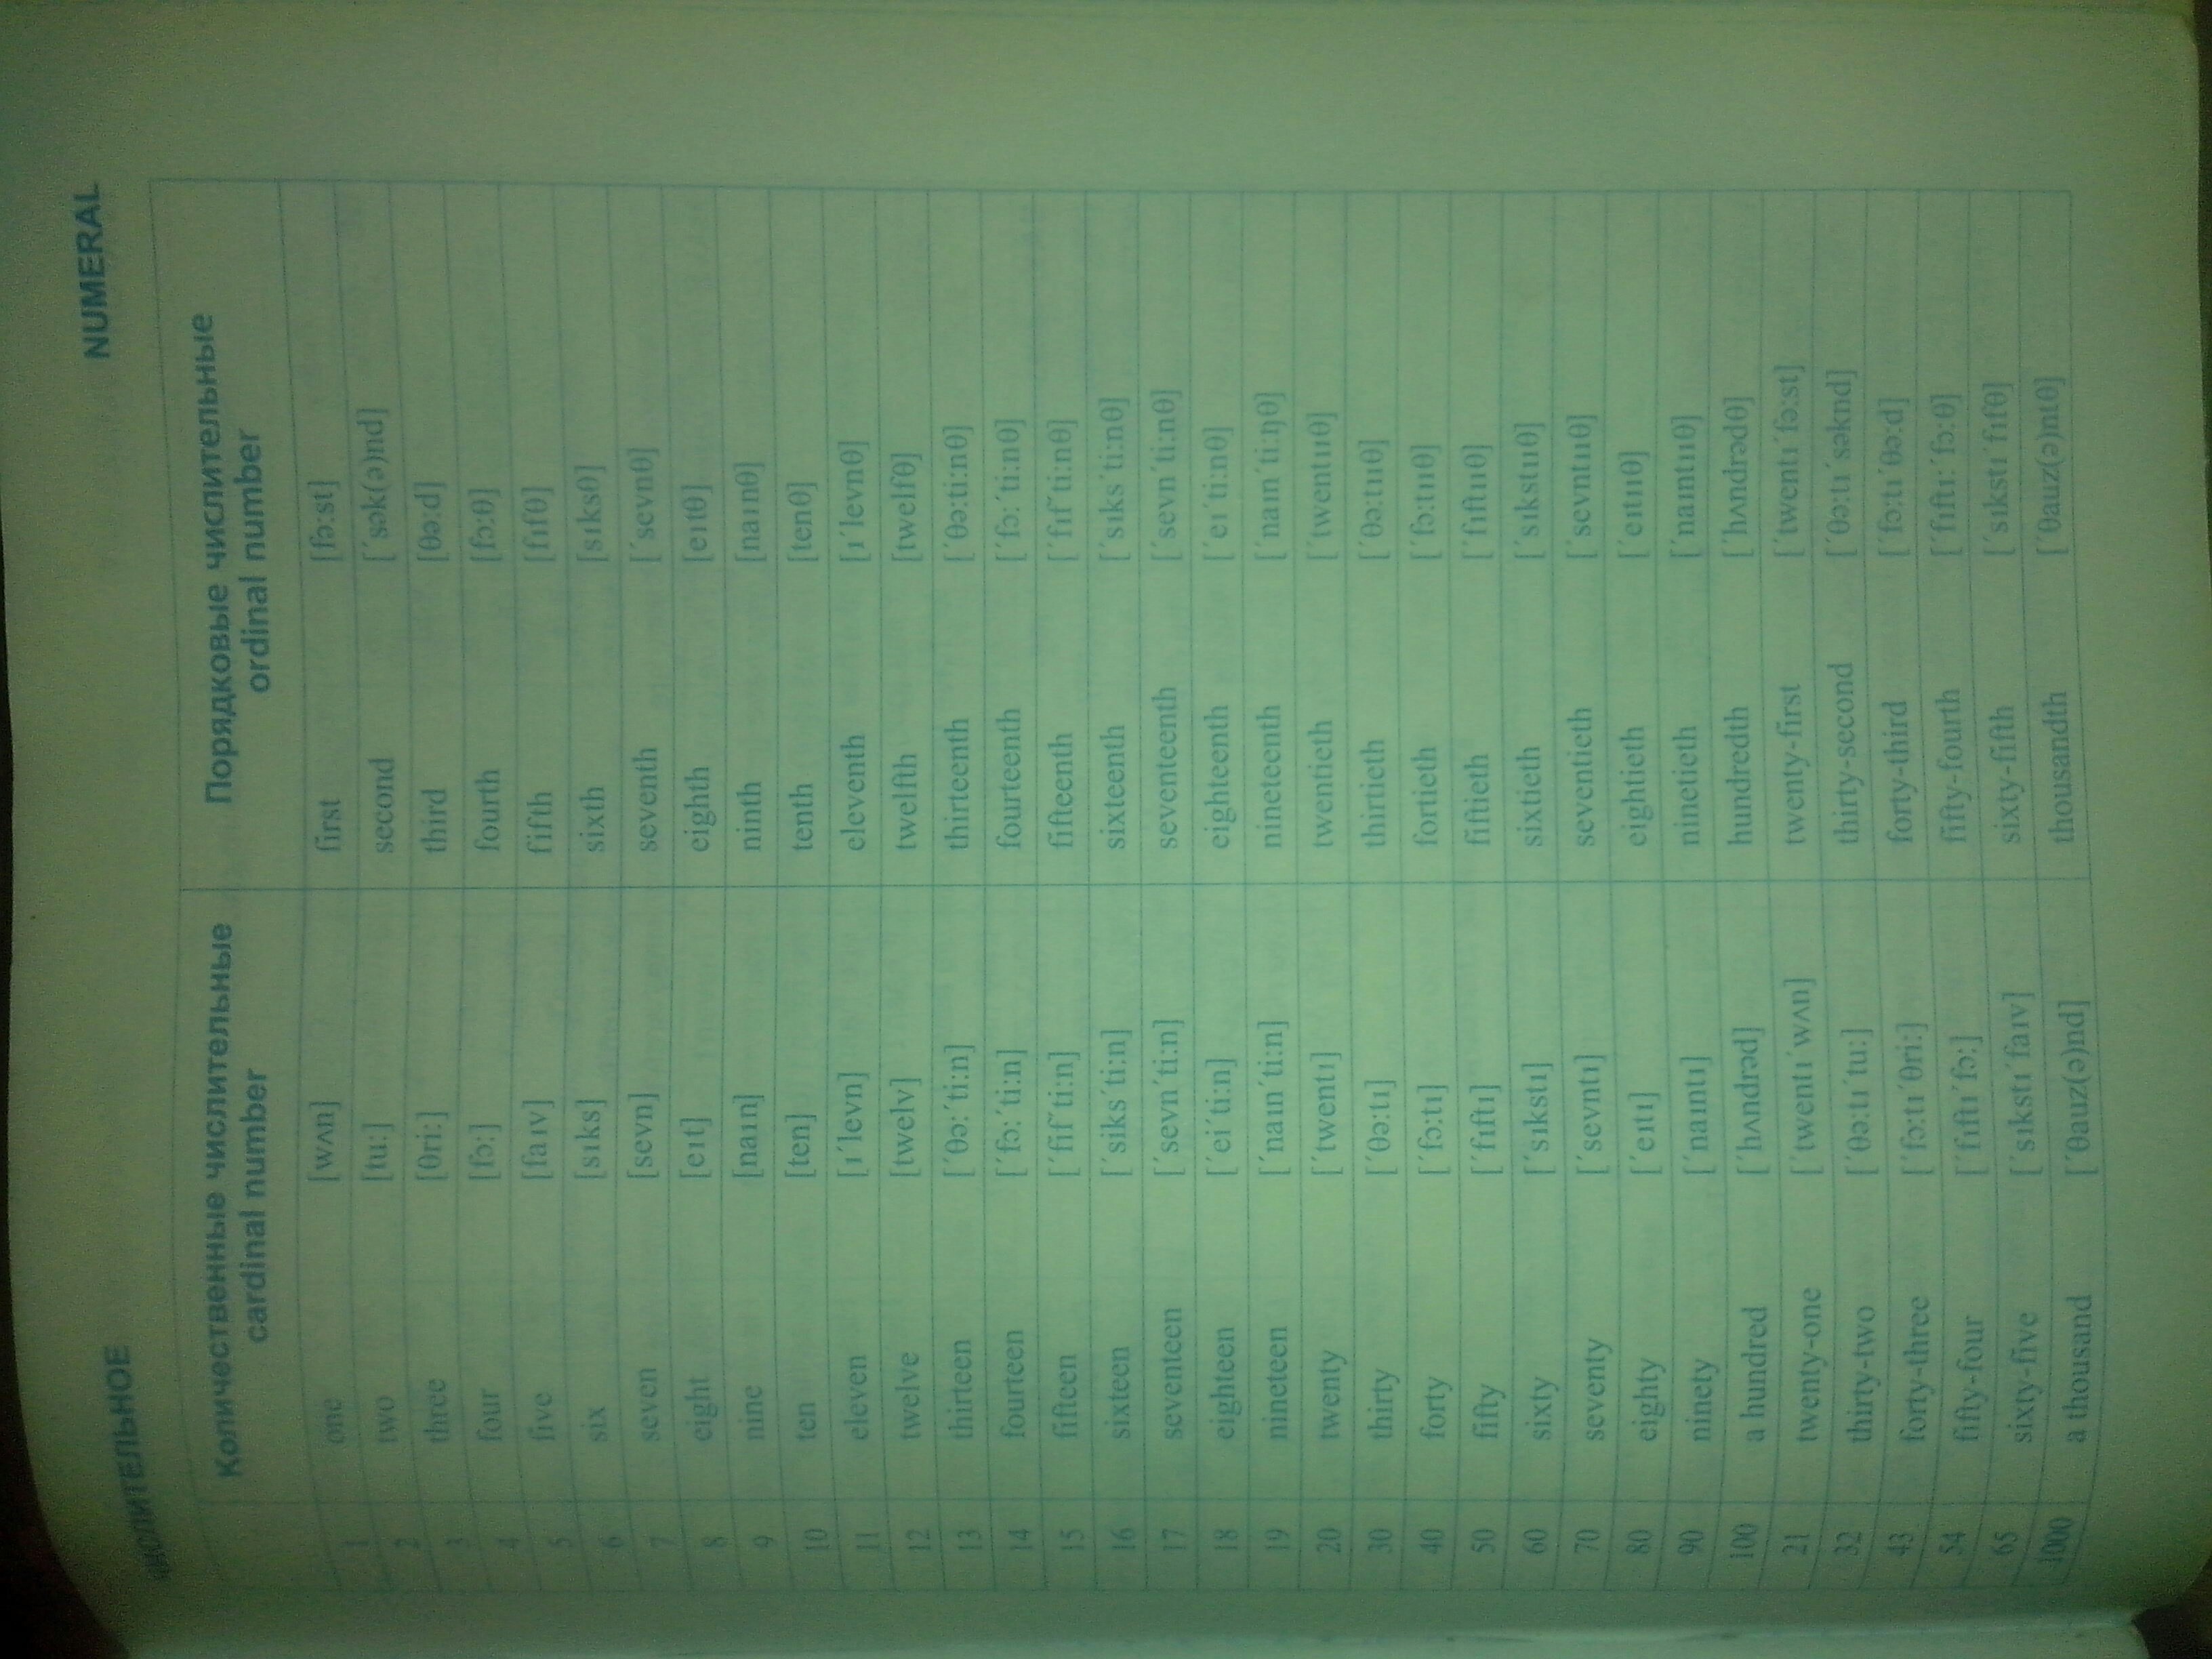 ЧИСЛИТЕЛЬНОЕ NUMERAL
Количественные числительные Порядковые числительные
cardinal number ordinal number
1 one [wʌn] first [fə:st]
2 two [tu:] second [´sək(ə)nd]
3 three [θri:] third [θə:d]
4 four [fɔ:] fourth [fɔ:θ]
5 five [faɪv] fifth [fɪfθ]
6 six [sɪks] sixth [sɪksθ]
7 seven [sevn] seventh [´sevnθ]
8 eight [eɪt] eighth [eɪtθ]
9 nine [naɪn] ninth [naɪnθ]
10 ten [ten] tenth [tenθ]
11 eleven [ɪ´levn] eleventh [ɪ´levnθ]
12 twelve [twelv] twelfth [twelfθ]
13 thirteen [´θə:´ti:n] thirteenth [´θə:ti:nθ]
14 fourteen [´fɔ:´ti:n] fourteenth [´fɔ:´ti:nθ]
15 fifteen [´fɪf´ti:n] fifteenth [´fɪf´ti:nθ]
16 sixteen [´sɪks´ti:n] sixteenth [´sɪks´ti:nθ]
17 seventeen [´sevn´ti:n] seventeenth [´sevn´ti:nθ]
18 eighteen [´ei´ti:n] eighteenth [´eɪ´ti:nθ]
19 nineteen [´naɪn´ti:n] nineteenth [´naɪn´ti:ŋθ]
20 twenty [´twentɪ] twentieth [´twentɪɪθ]
30 thirty [´θə:tɪ] thirtieth [´θə:tɪɪθ]
40 forty [´fɔ:tɪ] fortieth [´fɔ:tɪɪθ]
50 fifty [´fɪftɪ] fiftieth [´fɪftɪɪθ]
60 sixty [´sɪkstɪ] sixtieth [´sɪkstɪɪθ]
70 seventy [´sevntɪ] seventieth [´sevntɪɪθ]
80 eighty [´eɪtɪ] eightieth [´eɪtɪɪθ]
90 ninety [´naɪntɪ] ninetieth [´naɪntɪɪθ]
100 a hundred [´hʌndrəd] hundredth [´hʌndrədθ]
21 twenty-one [´twentɪ´wʌn] twenty-first [´twentɪ´fə:st]
32 thirty-two [´θə:tɪ´tu:] thirty-second [´θə:tɪ´səknd]
43 forty-three [´fɔ:tɪ´θri:] forty-third [´fɔ:tɪ´θə:d]
54 fifty-four [´fɪftɪ´fɔ:] fifty-fourth [´fɪftɪ:´fɔ:θ]
65 sixty-five [´sɪkstɪ´faɪv] sixty-fifth [´sɪkstɪ´fɪfθ]
1000 a thousand [´θauz(ə)nd] thousandth [´θauz(ə)ntθ]